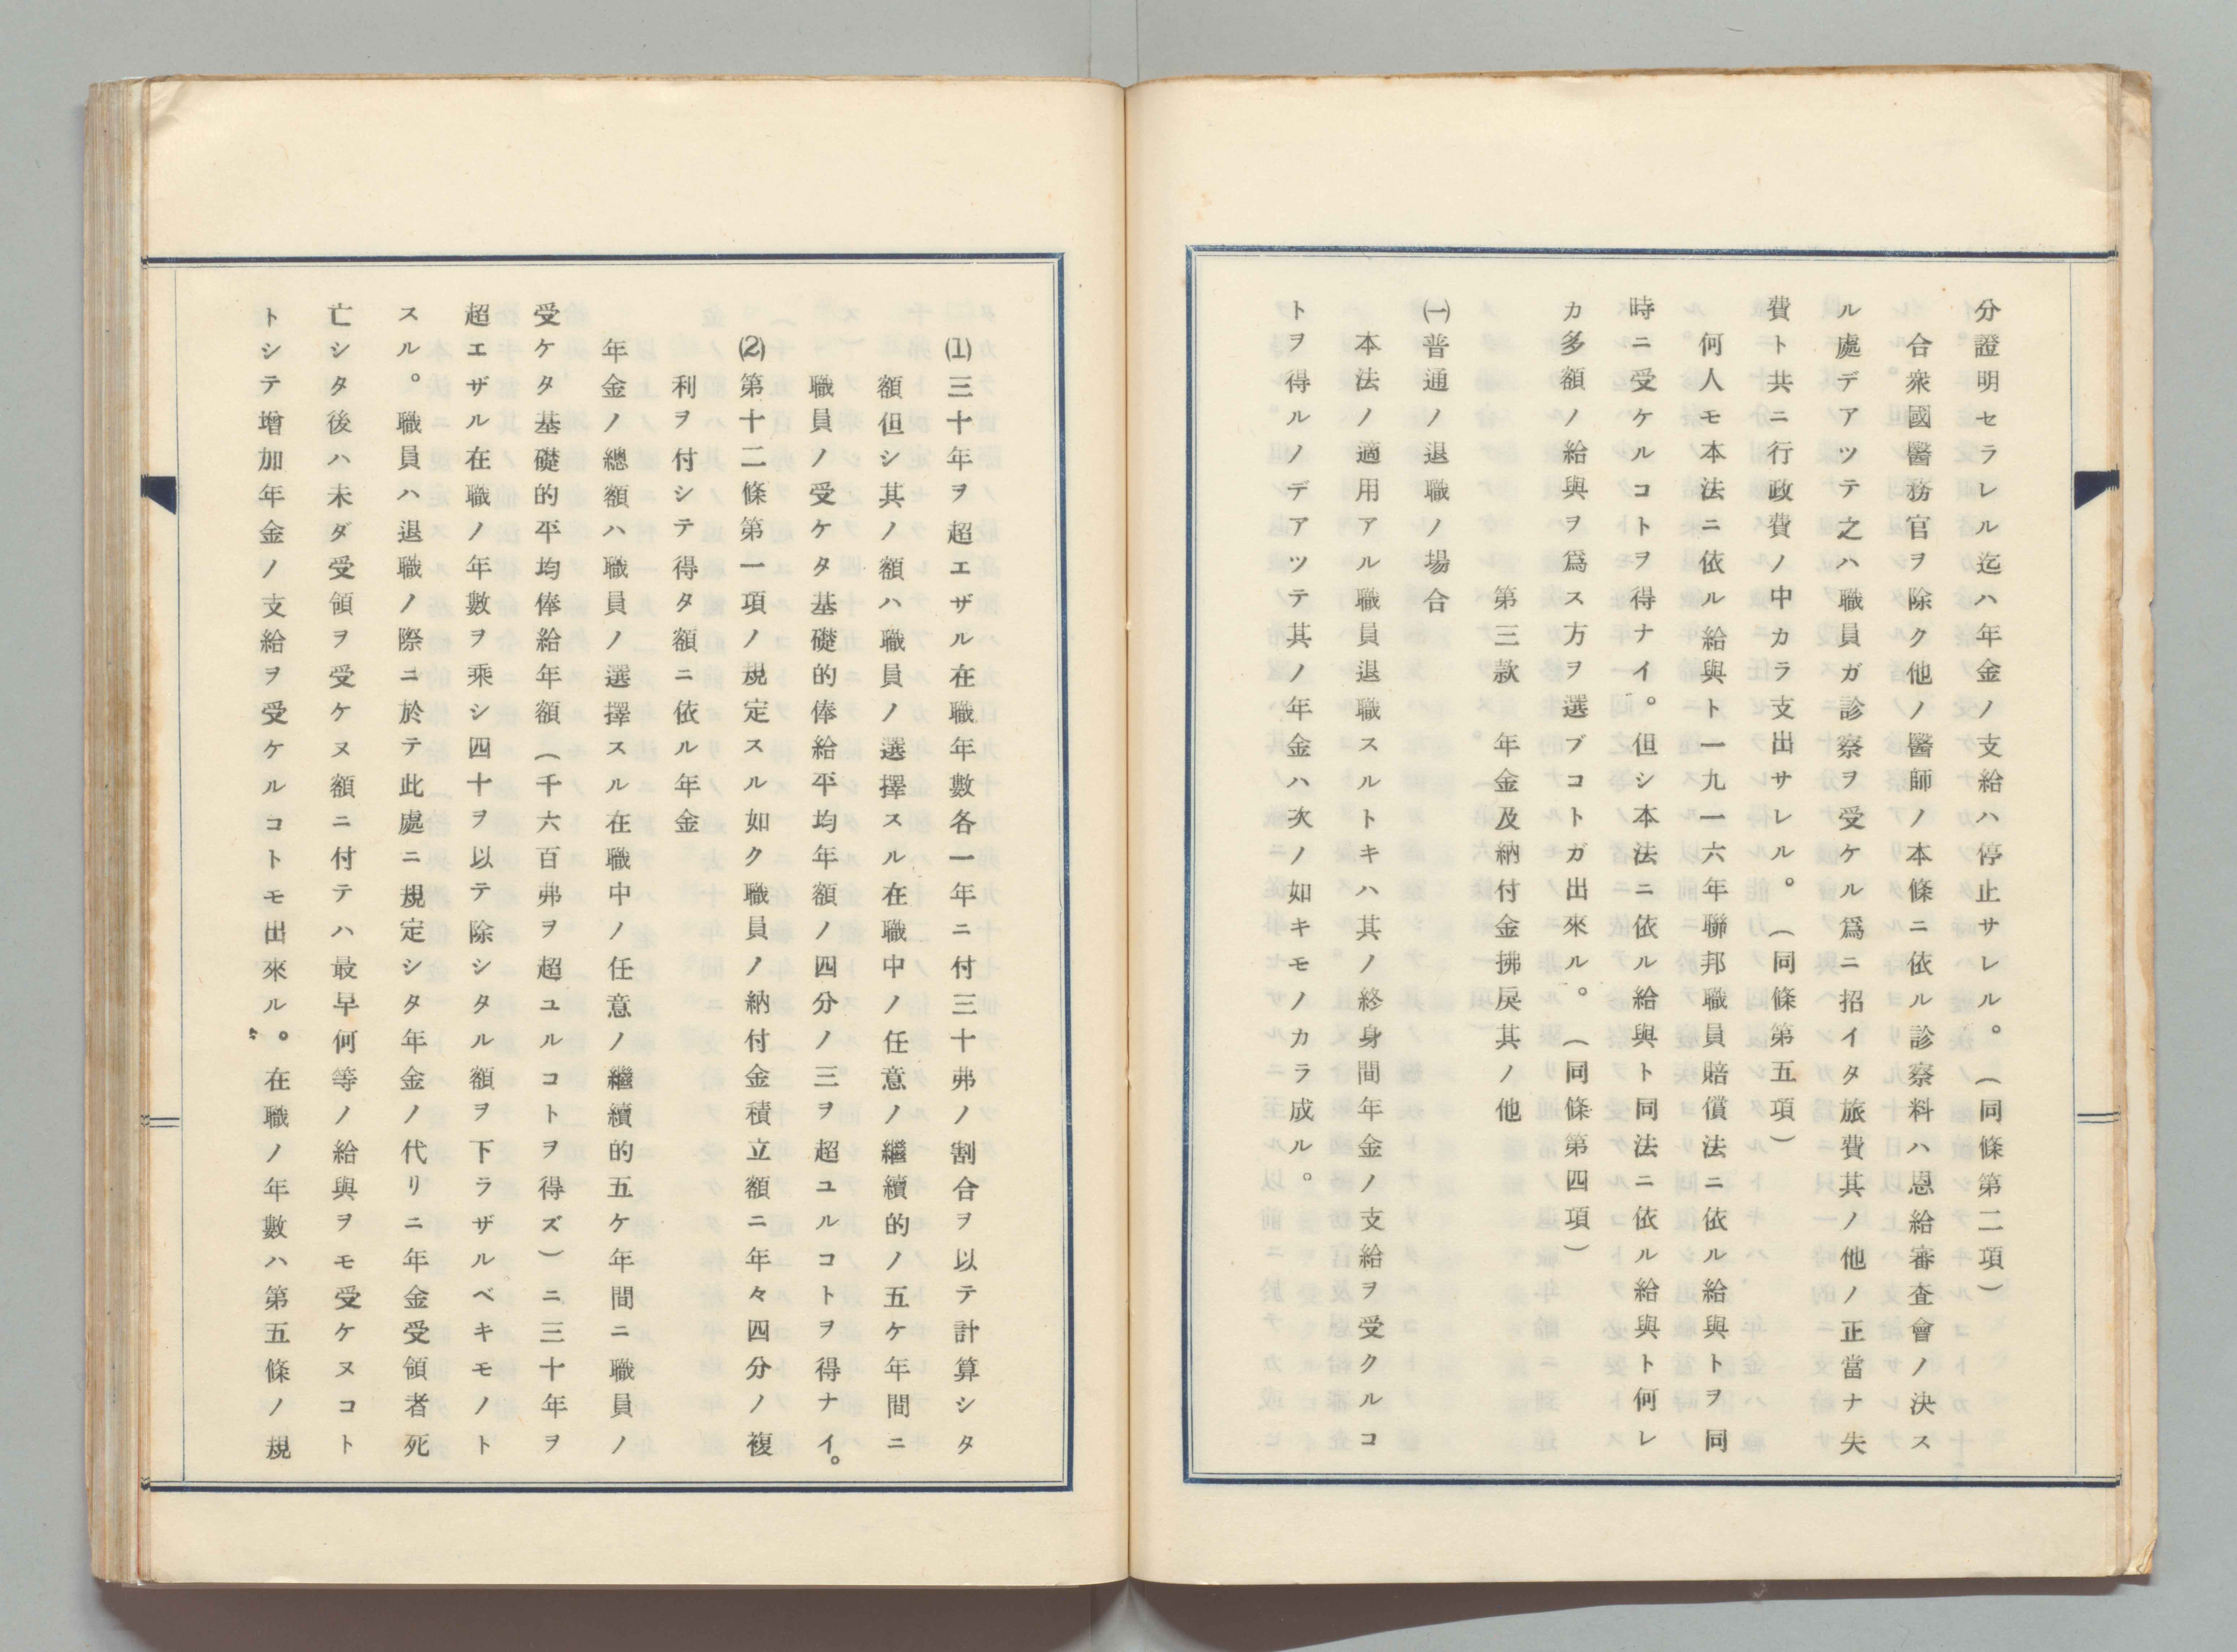 分證明セラレル迄ハ年金ノ支給ハ停止サレル。（同條第二項）
合衆國醫務官ヲ除ク他ノ醫師ノ本條ニ依ル診察料ハ恩給審査會ノ決ス
ル處デアツテ之ハ職員ガ診察ヲ受ケル爲ニ招イタ旅費其ノ他ノ正當ナ失
費ト共ニ行政費ノ中カラ支出サレル。（同條第五項）
何人モ本法ニ依ル給與ト一九一六年聯邦職員賠償法ニ依ル給與トヲ同
時ニ受ケルコトヲ得ナイ。但シ本法ニ依ル給與ト同法ニ依ル給與ト何レ
カ多額ノ給與ヲ爲ス方ヲ選ブコトガ出來ル。（同條第四項）
第三款　年金及納付金拂戻其ノ他
㈠普通ノ退職ノ場合
本法ノ適用アル職員退職スルトキハ其ノ終身間年金ノ支給ヲ受クルコ
トヲ得ルノデアツテ其ノ年金ハ次ノ如キモノカラ成ル。
⑴三十年ヲ超エザル在職年數各一年ニ付三十弗ノ割合ヲ以テ計算シタ
額但シ其ノ額ハ職員ノ選擇スル在職中ノ任意ノ繼續的ノ五ケ年間ニ
職員ノ受ケタ基礎的俸給平均年額ノ四分ノ三ヲ超ユルコトヲ得ナイ。
⑵第十二條第一項ノ規定スル如ク職員ノ納付金積立額ニ年々四分ノ複
利ヲ付シテ得タ額ニ依ル年金
年金ノ總額ハ職員ノ選擇スル在職中ノ任意ノ繼續的五ケ年間ニ職員ノ
受ケタ基礎的平均俸給年額（千六百弗ヲ超ユルコトヲ得ズ）ニ三十年ヲ
超エザル在職ノ年數ヲ乘シ四十ヲ以テ除シタル額ヲ下ラザルベキモノト
スル。職員ハ退職ノ際ニ於テ此處ニ規定シタ年金ノ代リニ年金受領者死
亡シタ後ハ未ダ受領ヲ受ケヌ額ニ付テハ最早何等ノ給與ヲモ受ケヌコト
トシテ增加年金ノ支給ヲ受ケルコトモ出來ル。在職ノ年數ハ第五條ノ規